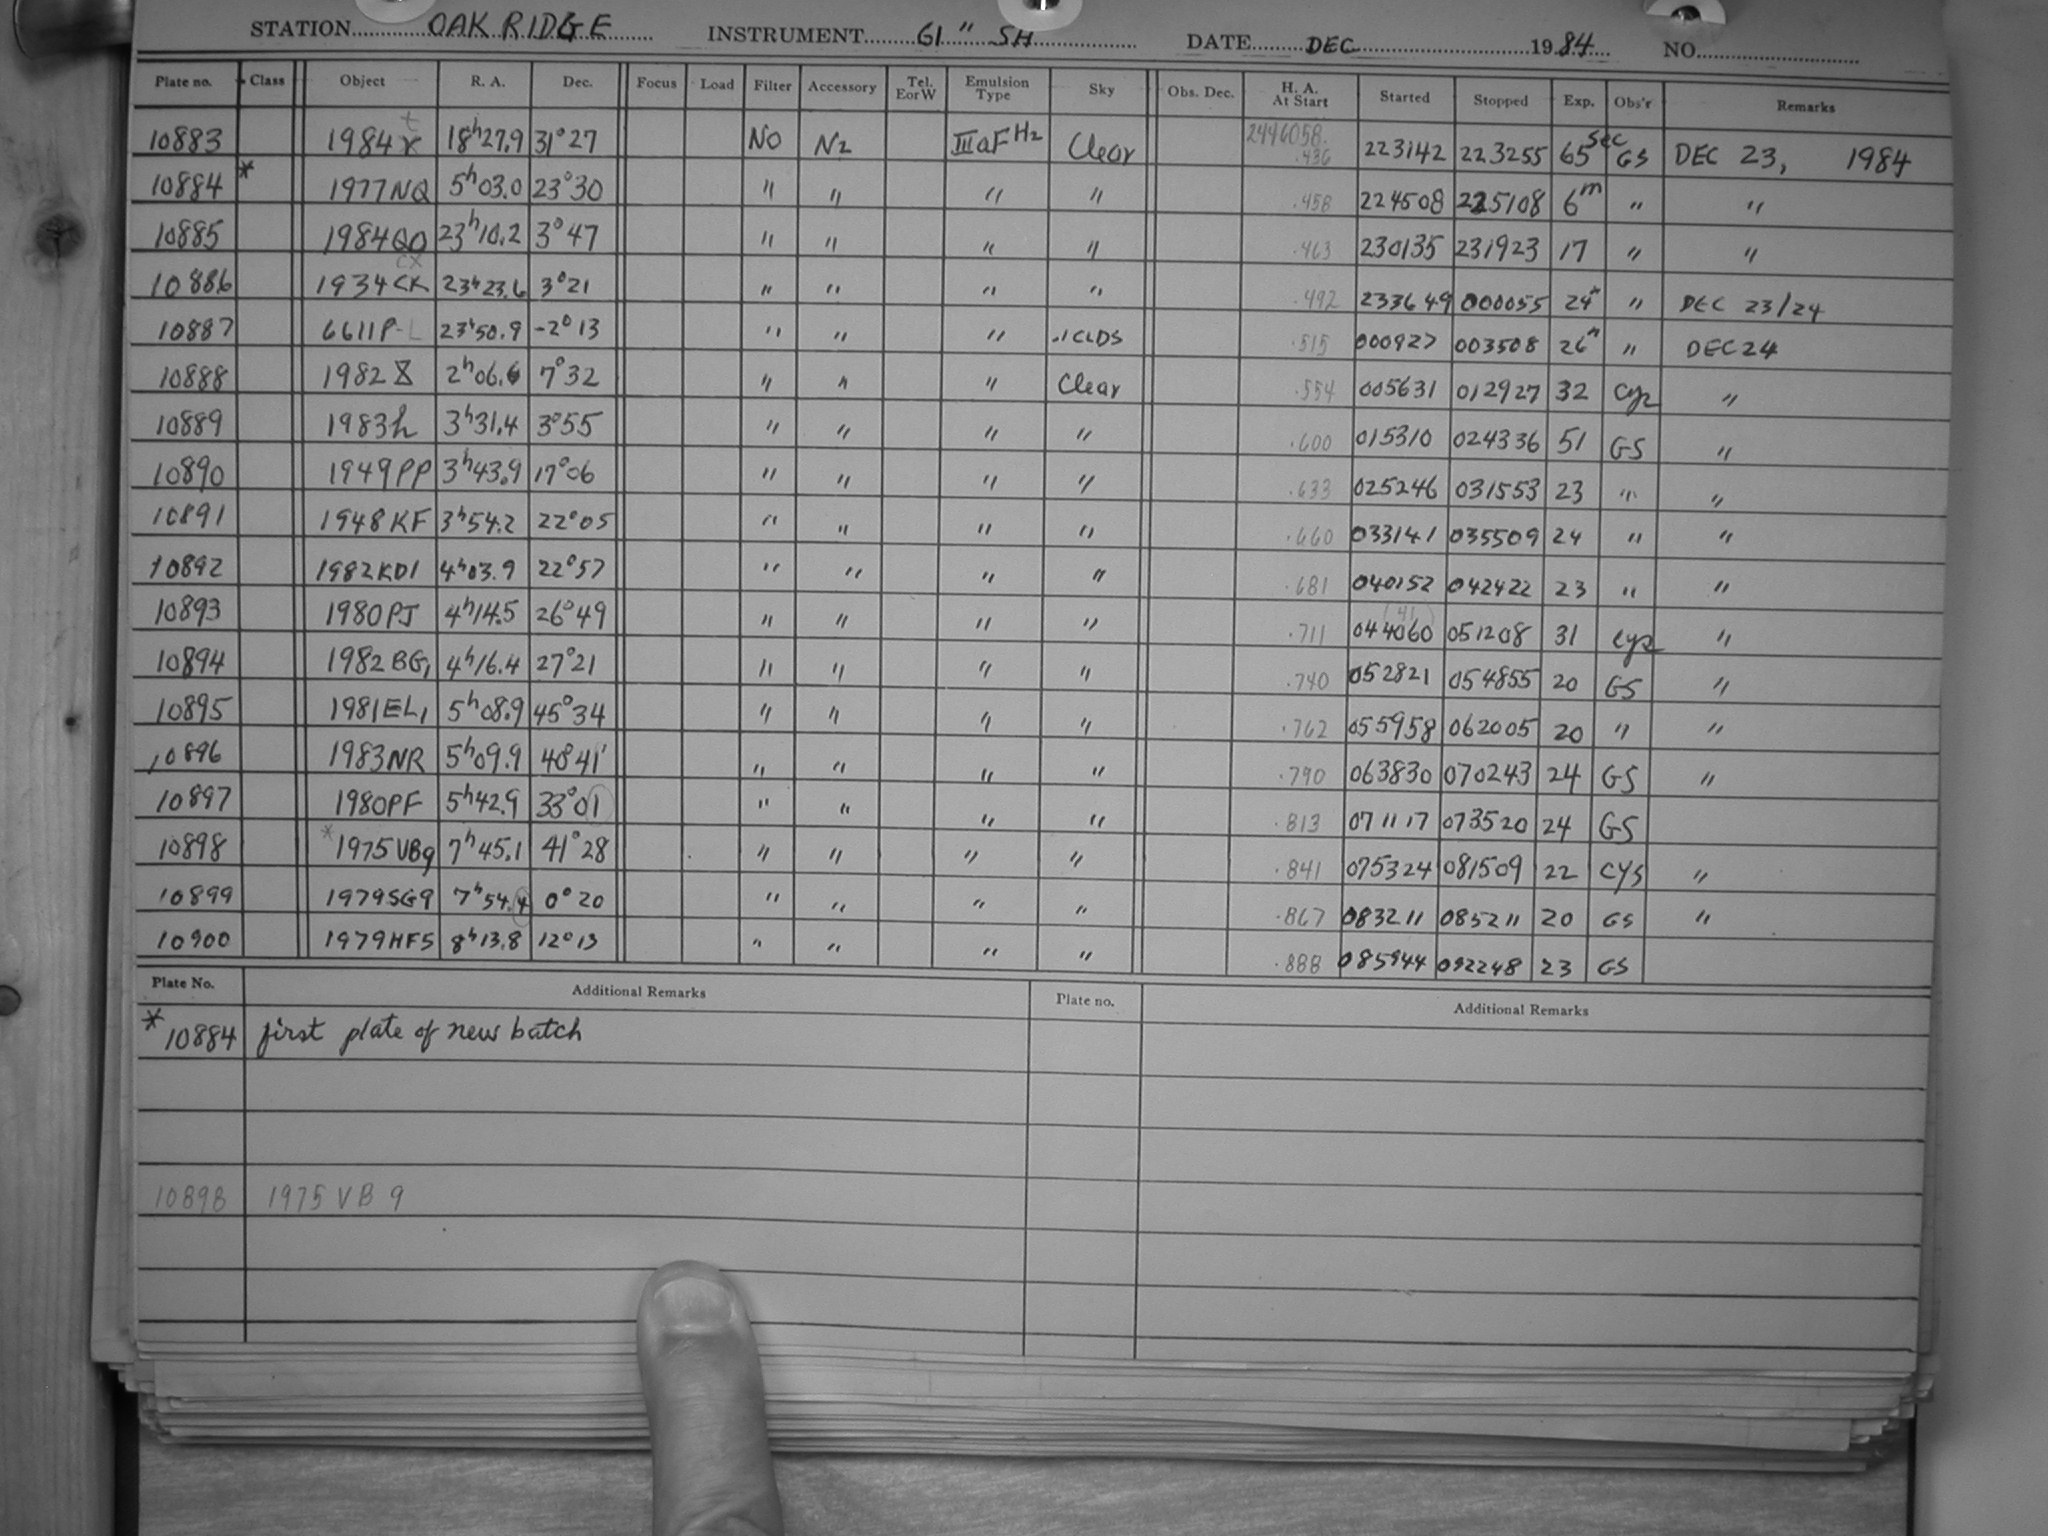 STATION OAK RIDGE INSTRUMENT 61" SH DATE DEC 1984 NO.
Plate no. Class Object R. A. Dec. Focus Load Filter Accessory Tel. E or W Emulsion Type Sky Obs. Dec. H. A. At Start Started Stopped Exp. Obs'r Remarks
10883 1984 t 18h27.9 31°27 NO N2 IIIaF H2 Clear 2446058. .436 223142 223255 65 sec GS DEC 23, 1984
10884 * 1977NQ 5h03.0 23°30 " " " " .458 224508 225108 6m " "
10885 1984QO 23h10.2 3°47 " " " " .463 230135 231923 17 " "
10886 1934CX 23h23.6 3°21 " " " " .492 233649 000055 24m " DEC 23/24
10887 6611P-L 23h50.9 -2°13 " " " .1CLDS .515 000927 003508 26m " DEC 24
10888 1982 2h06.6 7°32 " " " Clear .554 005631 012927 32 Cys "
10889 1983h 3h31.4 3°55 " " " " .600 015310 024336 51 GS "
10890 1949PP 3h43.9 17°06 " " " " .633 025246 031553 23 " "
10891 1948KF 3h54.2 22°05 " " " " .660 033141 035509 24 " "
10892 1982KD1 4h03.9 22°57 " " " " .681 040152 042422 23 " "
10893 1980PJ 4h14.5 26°49 " " " " .711 044060 (41) 051208 31 Cys "
10894 1982BG1 4h16.4 27°21 " " " " .740 052821 054855 20 GS "
10895 1981EL1 5h08.9 45°34 " " " " .762 055958 062005 20 " "
10896 1983NR 5h09.9 4841' " " " " .790 063830 070243 24 GS "
10897 1980PF 5h42.9 33°01 " " " " .813 071117 073520 24 GS
10898 *1975VB9 7h45.1 41°28 " " " " .841 075324 081509 22 CYS "
10899 1979SG9 7h54.4 0°20 " " " " .867 083211 085211 20 GS "
10900 1979HF5 8h13.8 12°13 " " " " .888 085944 092248 23 GS
Plate No. Additional Remarks Plate no. Additional Remarks
*10884 first plate of new batch
10898 1975 VB 9